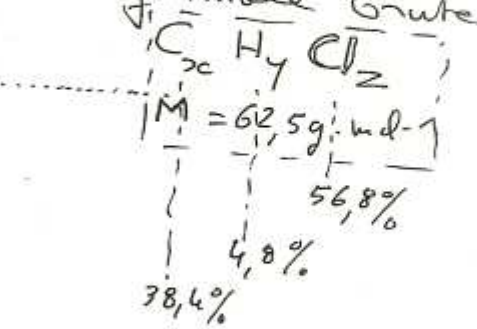 brute
CxHyClz
M = 62,5g.mol-1
56,8%
4,8%
38,4%